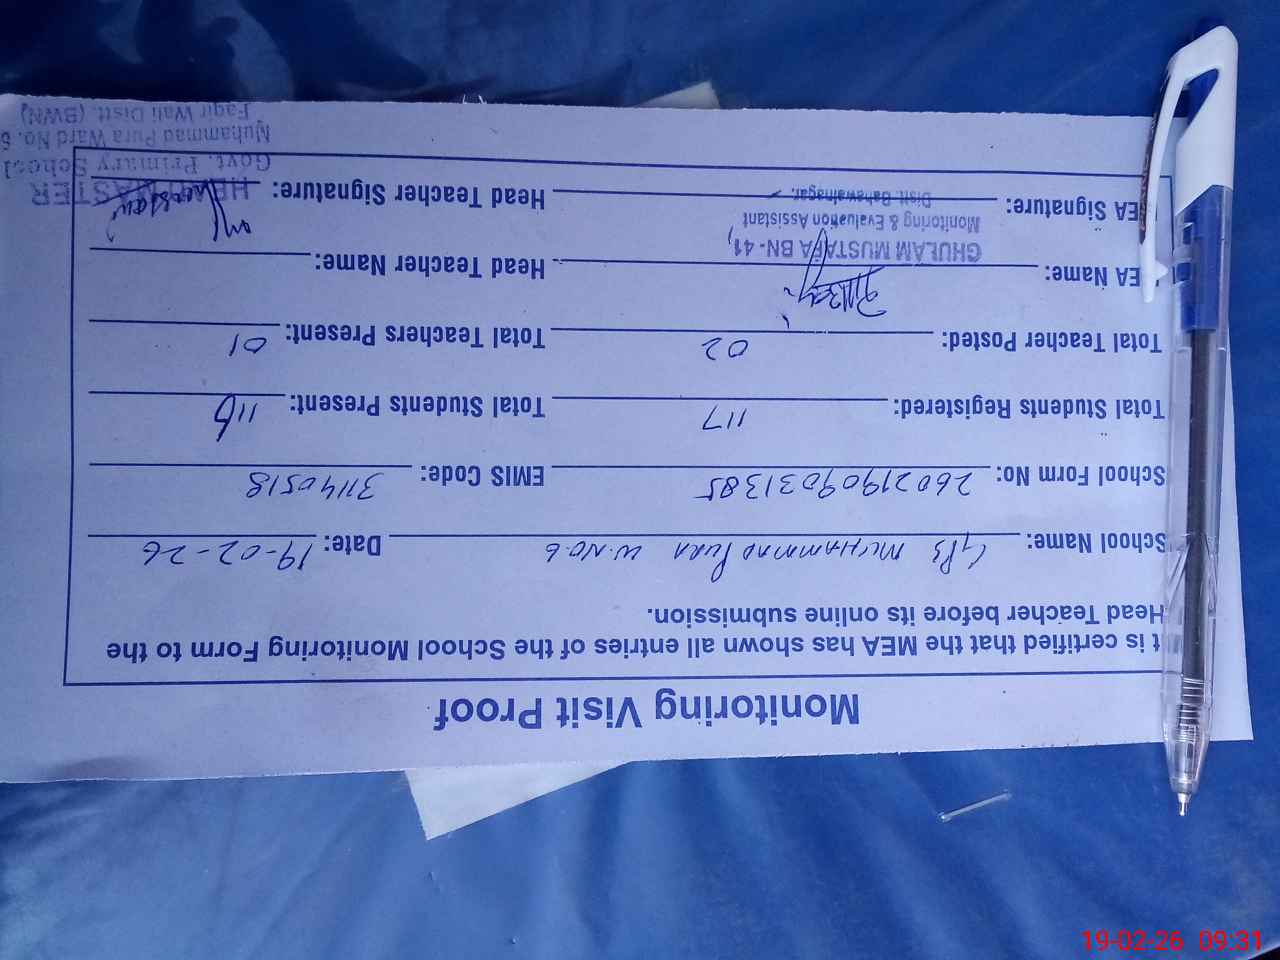 Monitoring Visit Proof
It is certified that the MEA has shown all entries of the School Monitoring Form to the
Head Teacher before its online submission.
School Name: GPS MUHAMMAD PURA W.NO.6 Date: 19-02-26
School Form No: 26021909031385 EMIS Code: 31140518
Total Students Registered: 117 Total Students Present: 116
Total Teacher Posted: 02 Total Teachers Present: 01
MEA Name: Head Teacher Name:
GHULAM MUSTAFA BN-41
Monitoring & Evaluation Assistant
Distt. Bahawalnagar.
MEA Signature: Head Teacher Signature:
HEADMASTER
Govt. Primary School
Muhammad Pura Ward No. 6
Faqir Wali Distt. (BWN)
19-02-26 09:31